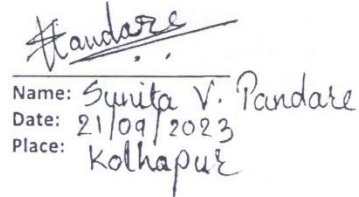 Pandare
Name: Sunita V. Pandare
Date: 21/09/2023
Place: Kolhapur